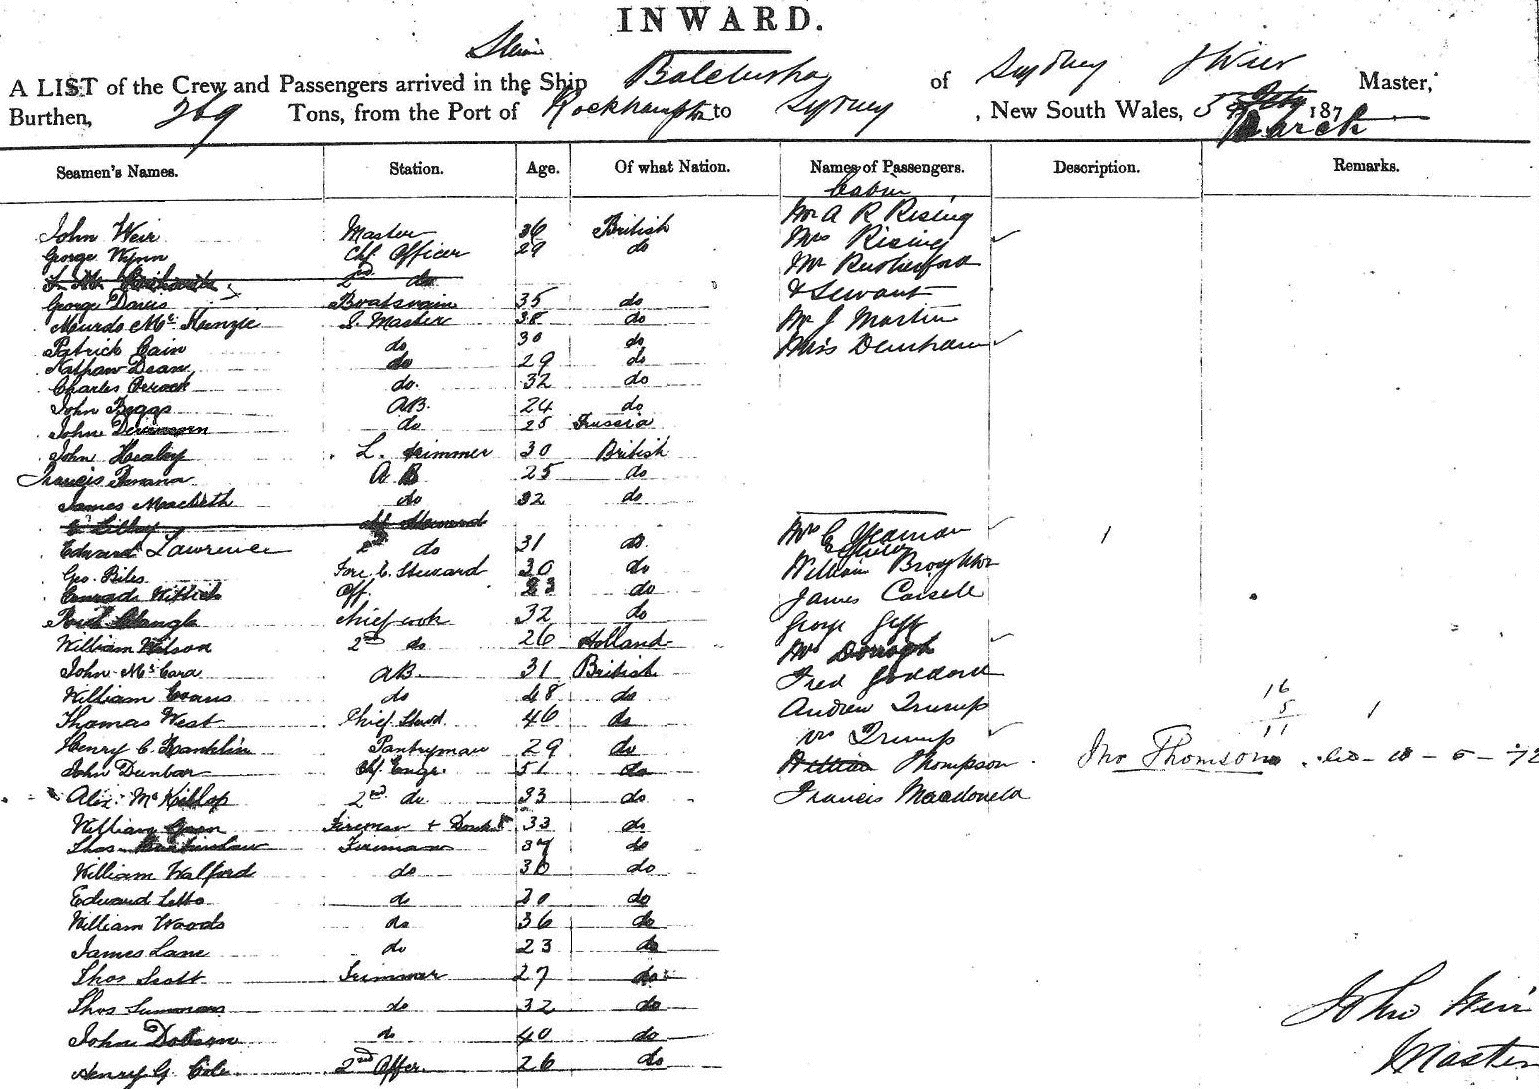 INWARD.
A LIST of the Crew and Passengers arrived in the Ship of Sydney J Weir Master,
Burthen, 269 Tons, from the Port of Rockhampton to Sydney , New South Wales, 5 March 187
Seamen's Names. Station. Age. Of what Nation. Names of Passengers. Description. Remarks.
Cabin
Mr A R Rising
John Weir Master 36 British
Mrs Rising
George Wynn Chf Officer 29 do
Mr Rutherford
2nd do
& Servant
George Davis Boatswain 35 do
Murdo McKenzie S. Master 38 do Mr J Martin
Patrick Cain do 30 do Miss Denham
Nathan Dean do 29 do
Charles do. 32 do
John Beggs AB. 24 do
John do 25 Prussia
John Healey L. trimmer 30 British
Francis A B 25 do
James Macbeth do 32 do
E Lilley Chf Steward
Mrs E Yeaman
Edward Lawrence 2nd do 31 do 1
Geo. Biles Fore C. Steward 30 do William Broughton
Conrad 23 do James Carsell
chief cook 32 do George
William Wilson 2nd do 26 Holland Mrs
John McCara AB. 31 British Fred Goddard
William Evans do 48 do Andrew Trump 16
5
11
Thomas West Chief Stwd 46 do 1
Mrs Trump
Henry C. Franklin Pantryman 29 do
John Dunbar Chf Engr 51 do William Thompson Jno Thomson
Alex McKillop 2nd do 33 do Francis Macdonald
William Fireman & 33 do
Thos Fireman 37 do
William Walford do 30 do
Edward do 30 do
William Woods do 36 do
James Lane do 23 do
Thos Scott Trimmer 27 do
Thos Summons do 32 do
John Dobson do 40 do
Henry G. Cole 2nd Offer 26 do
John Weir
Master